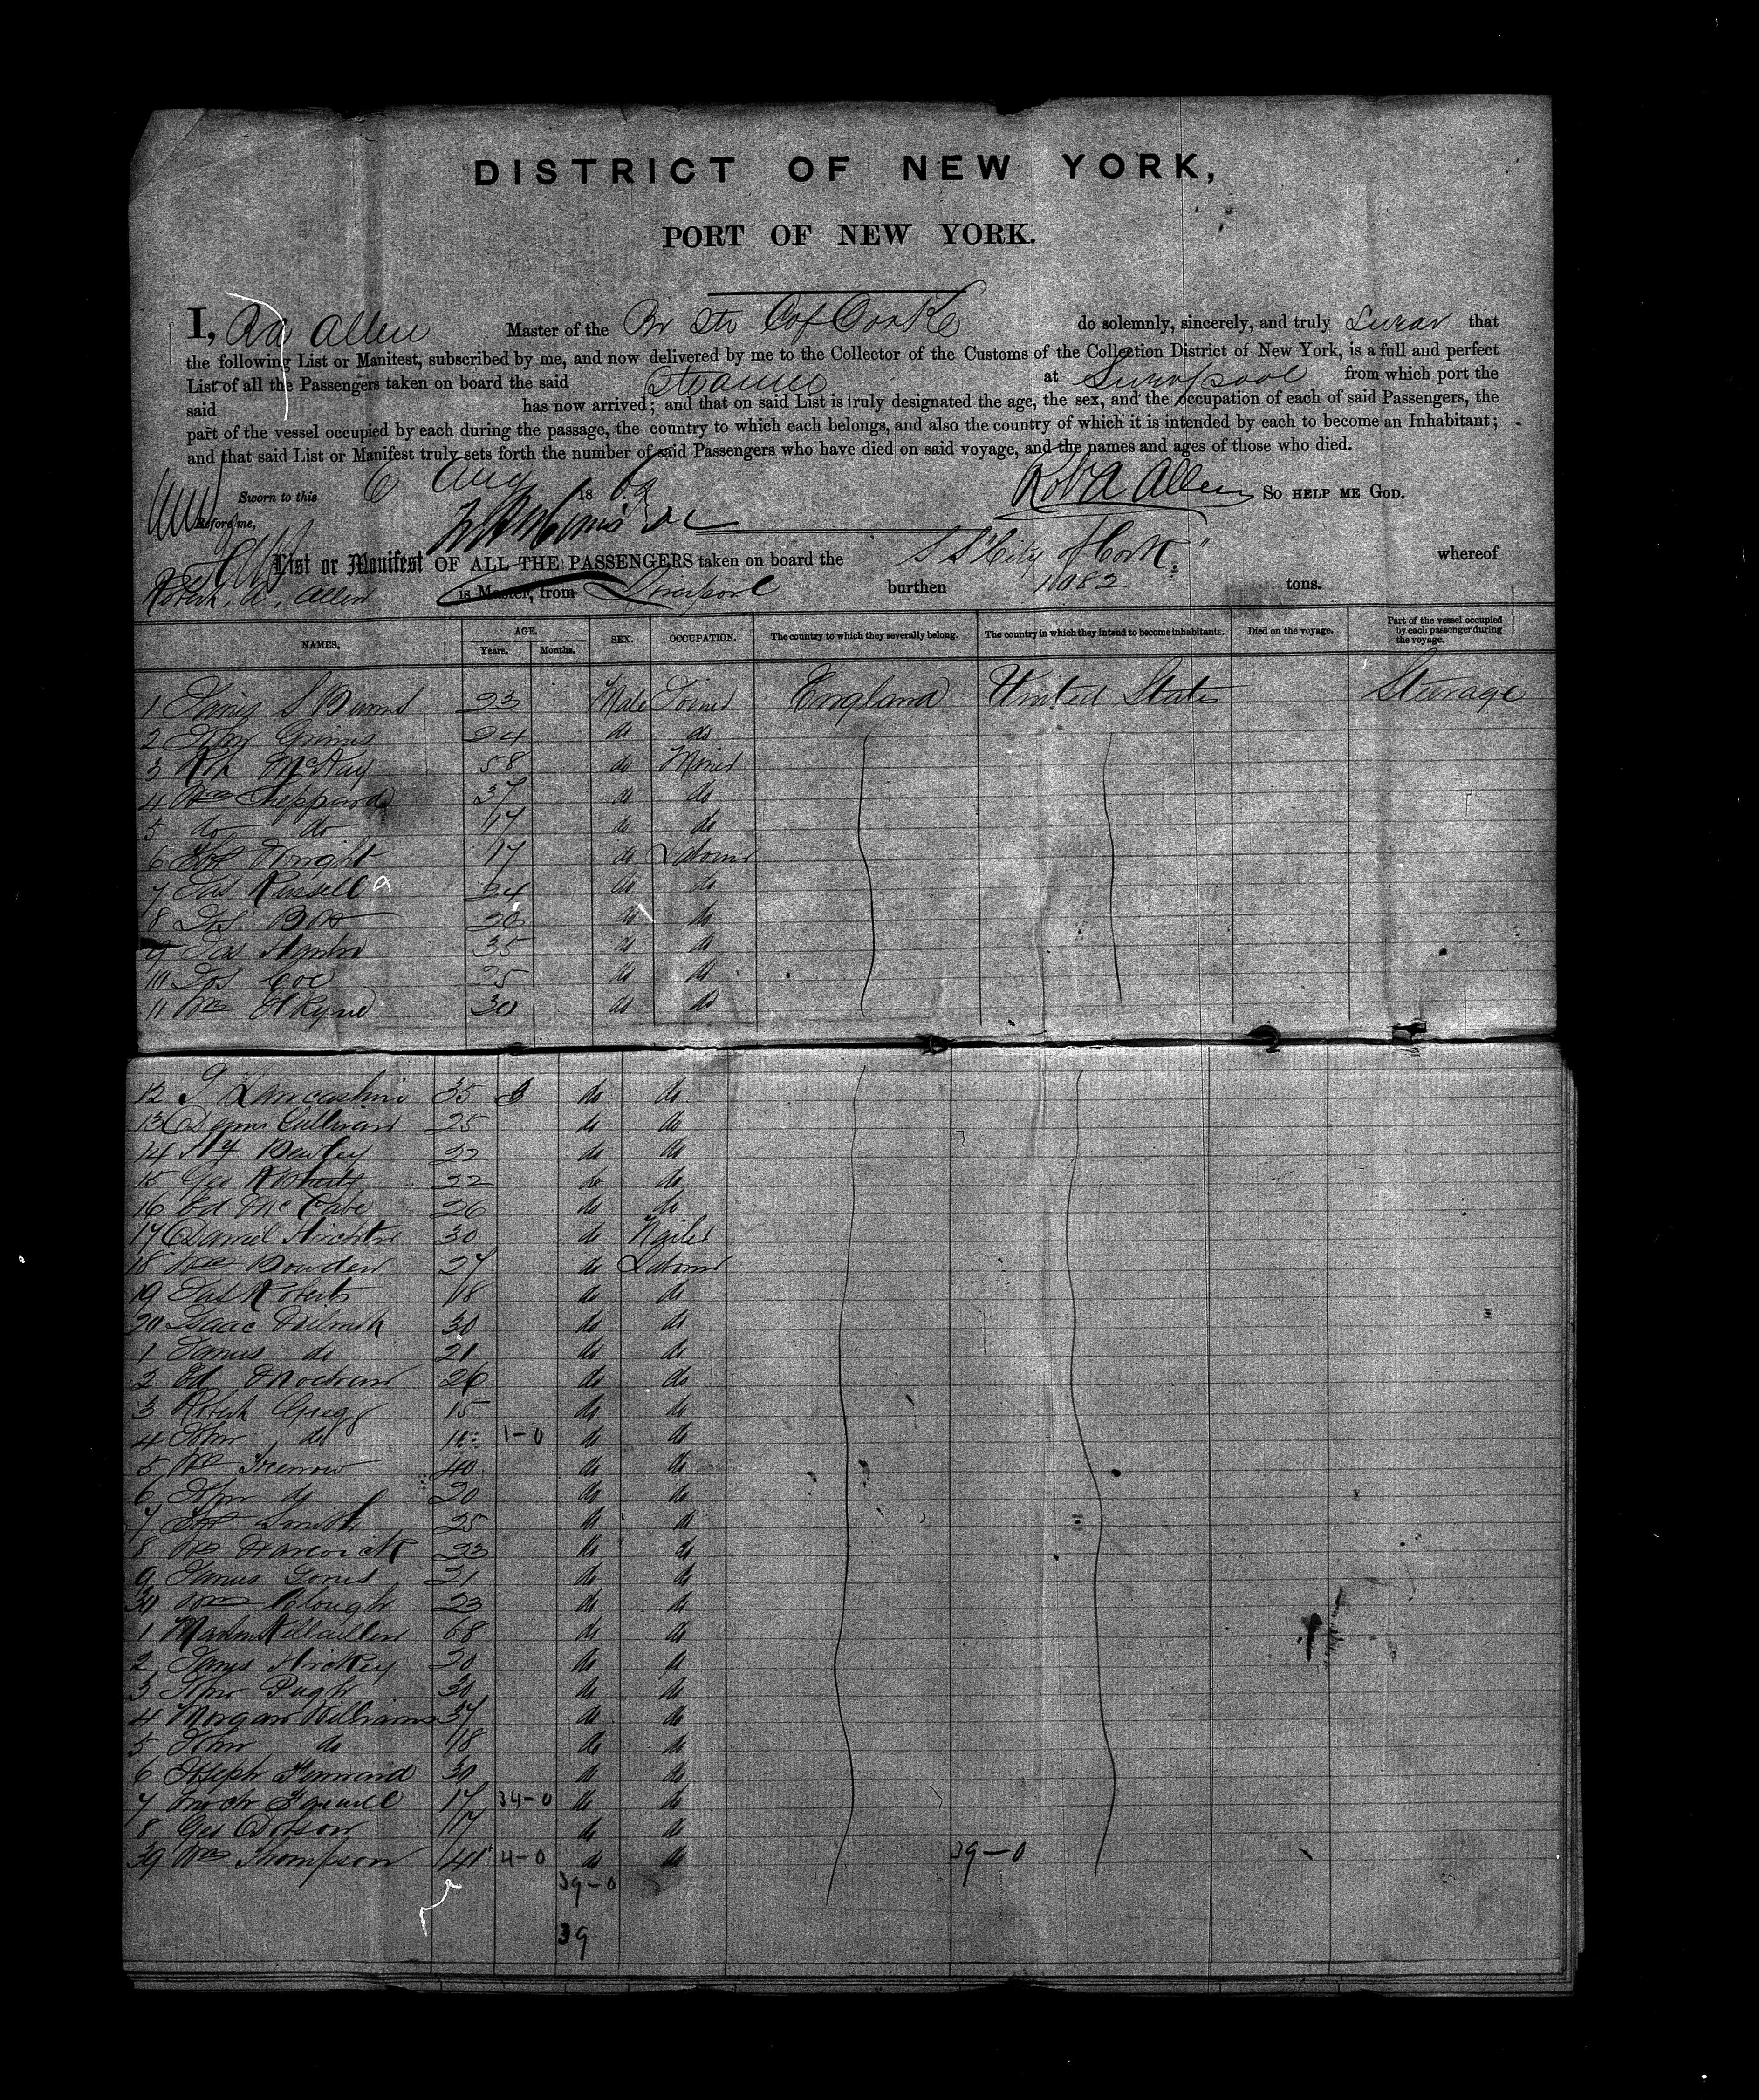 DISTRICT OF NEW YORK,
PORT OF NEW YORK.
I, Allen Master of the Br Str C of Cork do solemnly, sincerely, and truly swear that
the following List or Manifest, subscribed by me, and now delivered by me to the Collector of the Customs of the Collection District of New York, is a full and perfect
List of all the Passengers taken on board the said Steamer at Liverpool from which port the
said has now arrived; and that on said List is truly designated the age, the sex, and the occupation of each of said Passengers, the
part of the vessel occupied by each during the passage, the country to which each belongs, and also the country of which it is intended by each to become an Inhabitant;
and that said List or Manifest truly sets forth the number of said Passengers who have died on said voyage, and the names and ages of those who died.
Sworn to this 6 Aug 1869 Robt A Allen SO HELP ME GOD.
Before me,
List or Manifest OF ALL THE PASSENGERS taken on board the S S "City of Cork" whereof
Robert. A. Allen is Master, from Liverpool burthen 1082 tons.
NAMES. AGE. Years. Months. SEX. OCCUPATION. The country to which they severally belong. The country in which they intend to become inhabitants. Died on the voyage. Part of the vessel occupied by each passenger during the voyage.
1 S 23 Male Joiner England United States Steerage
2 24 do do
3 McKay 58 do Miner
4 Wm Sheppard 37 do do
5 do do 17 do do
6 Wright 17 do Laborer
7 Jas Kinsella 24 do do
8 Jos. 20 do do
9 Jas 35 do do
10 Jos Coe 25 do do
11 Wm 30 do do
12 Lancashire 35 do do
13 Dennis Sullivan 25 do do
14 Hy Bewley 22 do do
15 Geo Roberts 22 do do
16 Ed McCabe 26 do do
17 Daniel 30 do Nailer
18 Wm Bowden 27 do Laborer
19 Jas Roberts 18 do do
20 Isaac 30 do do
1 James do 21 do do
2 Ed 26 do do
3 Robert Gregg 15 do do
4 John do 1-0 do do
5 Wm 40 do do
6 John do 20 do do
7 Smith 25 do do
8 Wm 23 do do
9 James Jones 21 do do
30 Wm Clough 23 do do
1 68 do do
2 James Hickey 20 do do
3 John Pugh 30 do do
4 Morgan Williams 37 do do
5 John do 18 do do
6 Joseph 30 do do
7 17 34-0 do do
8 Geo Dobson 17 do do
39 Wm Thompson 41 4-0 do do 39-0
39-0
39